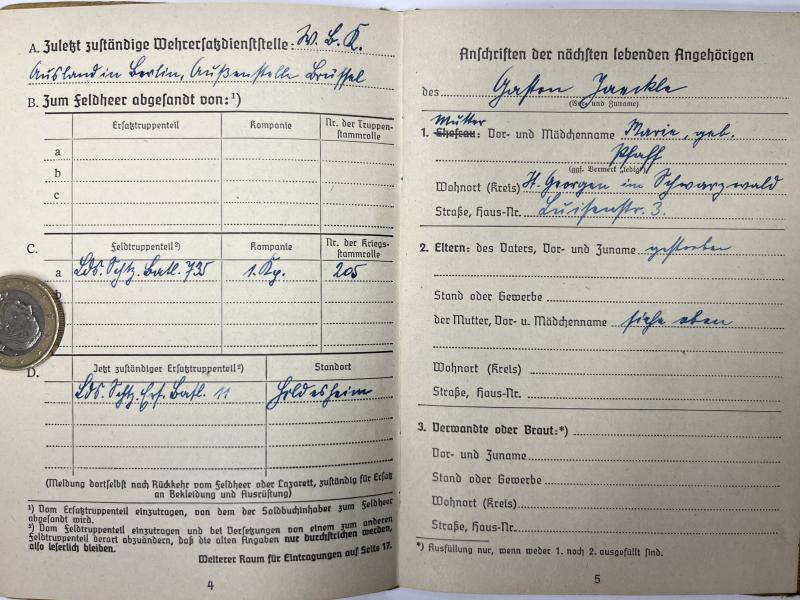 A. Zuletzt zuständige Wehrersatzdienststelle: W. B. K.
Ausland in Berlin, Außenstelle Brüssel
B. Zum Feldheer abgesandt von:¹)
Ersatztruppenteil
Kompanie
Nr. der Truppen-
stammrolle
a
b
c
C.
Feldtruppenteil²)
Kompanie
Nr. der Kriegs-
stammrolle
a Lds. Schtz. Batl. 735 1. Kp. 205
b
D.
Jetzt zuständiger Ersatztruppenteil²)
Standort
Lds. Schtz. Ers. Batl. 11 Hildesheim
(Meldung dortselbst nach Rückkehr vom Feldheer oder Lazarett, zuständig für Ersatz
an Bekleidung und Ausrüstung)
¹) Vom Ersatztruppenteil einzutragen, von dem der Soldbuchinhaber zum Feldheer
abgesandt wird.
²) Vom Feldtruppenteil einzutragen und bei Versetzungen von einem zum anderen
Feldtruppenteil derart abzuändern, daß die alten Angaben nur durchstrichen werden,
also leserlich bleiben.
Weiterer Raum für Eintragungen auf Seite 17.
4
Anschriften der nächsten lebenden Angehörigen
des Gaston Jaeckle
(Vor- und Zuname)
Mutter
1. Ehefrau: Vor- und Mädchenname Marie, geb.
Pfaff
(ggf. Vermerk „ledig“)
Wohnort (Kreis) St. Georgen im Schwarzwald
Straße, Haus-Nr. Luisenstr. 3.
2. Eltern: des Vaters, Vor- und Zuname gestorben
Stand oder Gewerbe
der Mutter, Vor- u. Mädchenname siehe oben
Wohnort (Kreis)
Straße, Haus-Nr.
3. Verwandte oder Braut:*)
Vor- und Zuname
Stand oder Gewerbe
Wohnort (Kreis)
Straße, Haus-Nr.
*) Ausfüllung nur, wenn weder 1. noch 2. ausgefüllt sind.
5